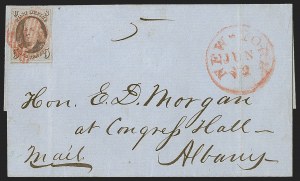 5
5 5
NEW-YORK
JUN
Hon. E. D. Morgan
at Congress Hall—
Mail. Albany